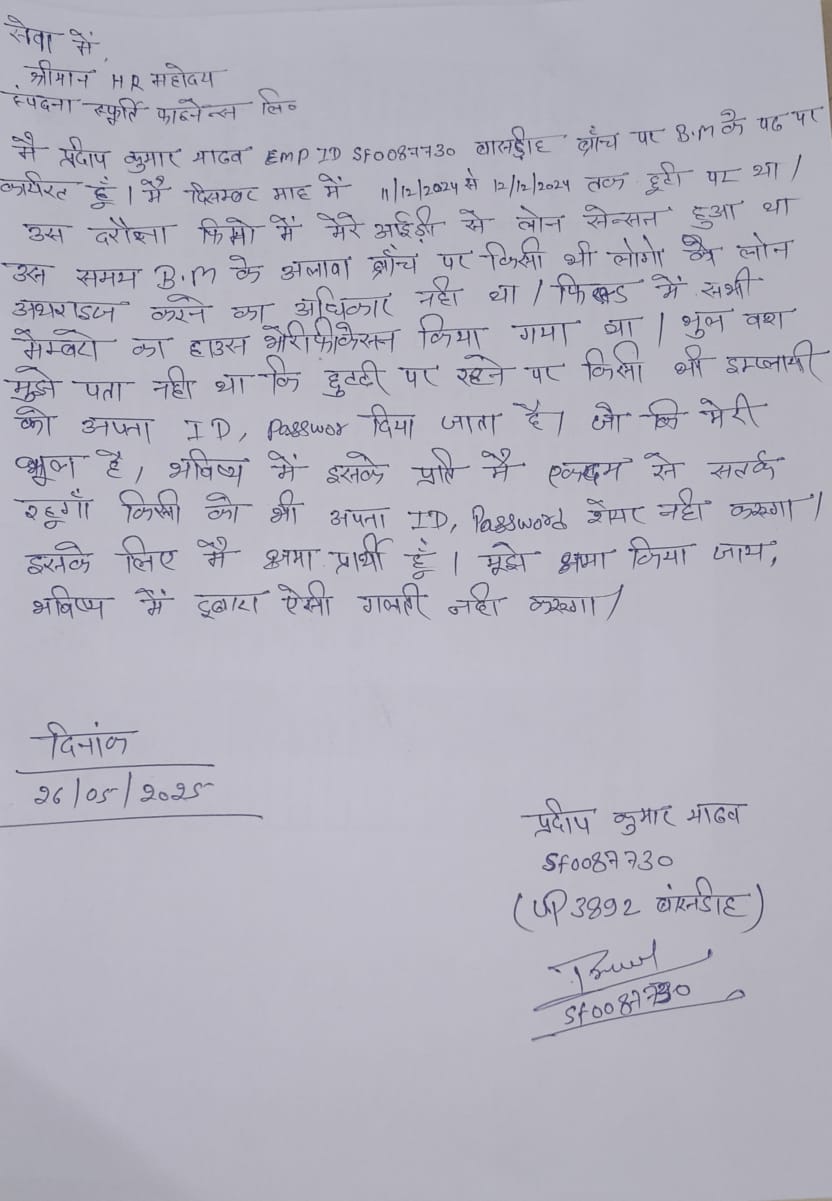 सेवा में,
श्रीमान HR महोदय
स्पंदना स्फूर्ति फाइनेन्स लि०
मै प्रदीप कुमार यादव EMP ID SF0087730 बासडीह ब्राँच पर B.M के पद पर
कार्यरत हूँ। मै दिसम्बर माह में 11/12/2024 से 12/12/2024 तक छूटी पर था।
उस दरौरान में मेरे आईडी से लोन सेन्सन हुआ था
उस समय B.M के अलावा ब्राँच पर किसी भी लोगो को लोन
अथराइज करने का अधिकार नही था। फिल्ड में सभी
मेम्बरो का हाउस भेरीफीकेसन किया गया था। भुल वश
मुझे पता नही था कि छुटटी पर रहने पर किसी भी इम्प्लायी
को अपना ID, Passwor दिया जाता है। जो कि मेरी
भूल है, भविष्य में इसके प्रति मै एकदम से सतर्क
रहूगाँ किसी को भी अपना ID, Password शेयर नही करूगा।
इसके लिए मै क्षमा प्रार्थी हूँ। मूझे क्षमा किया जाय,
भविष्य में दुबारा ऐसी गलती नही करूगा।
दिनांक
26/05/2025
प्रदीप कुमार यादव
SF0087730
(UP3892 बांसडीह)
SF0087730